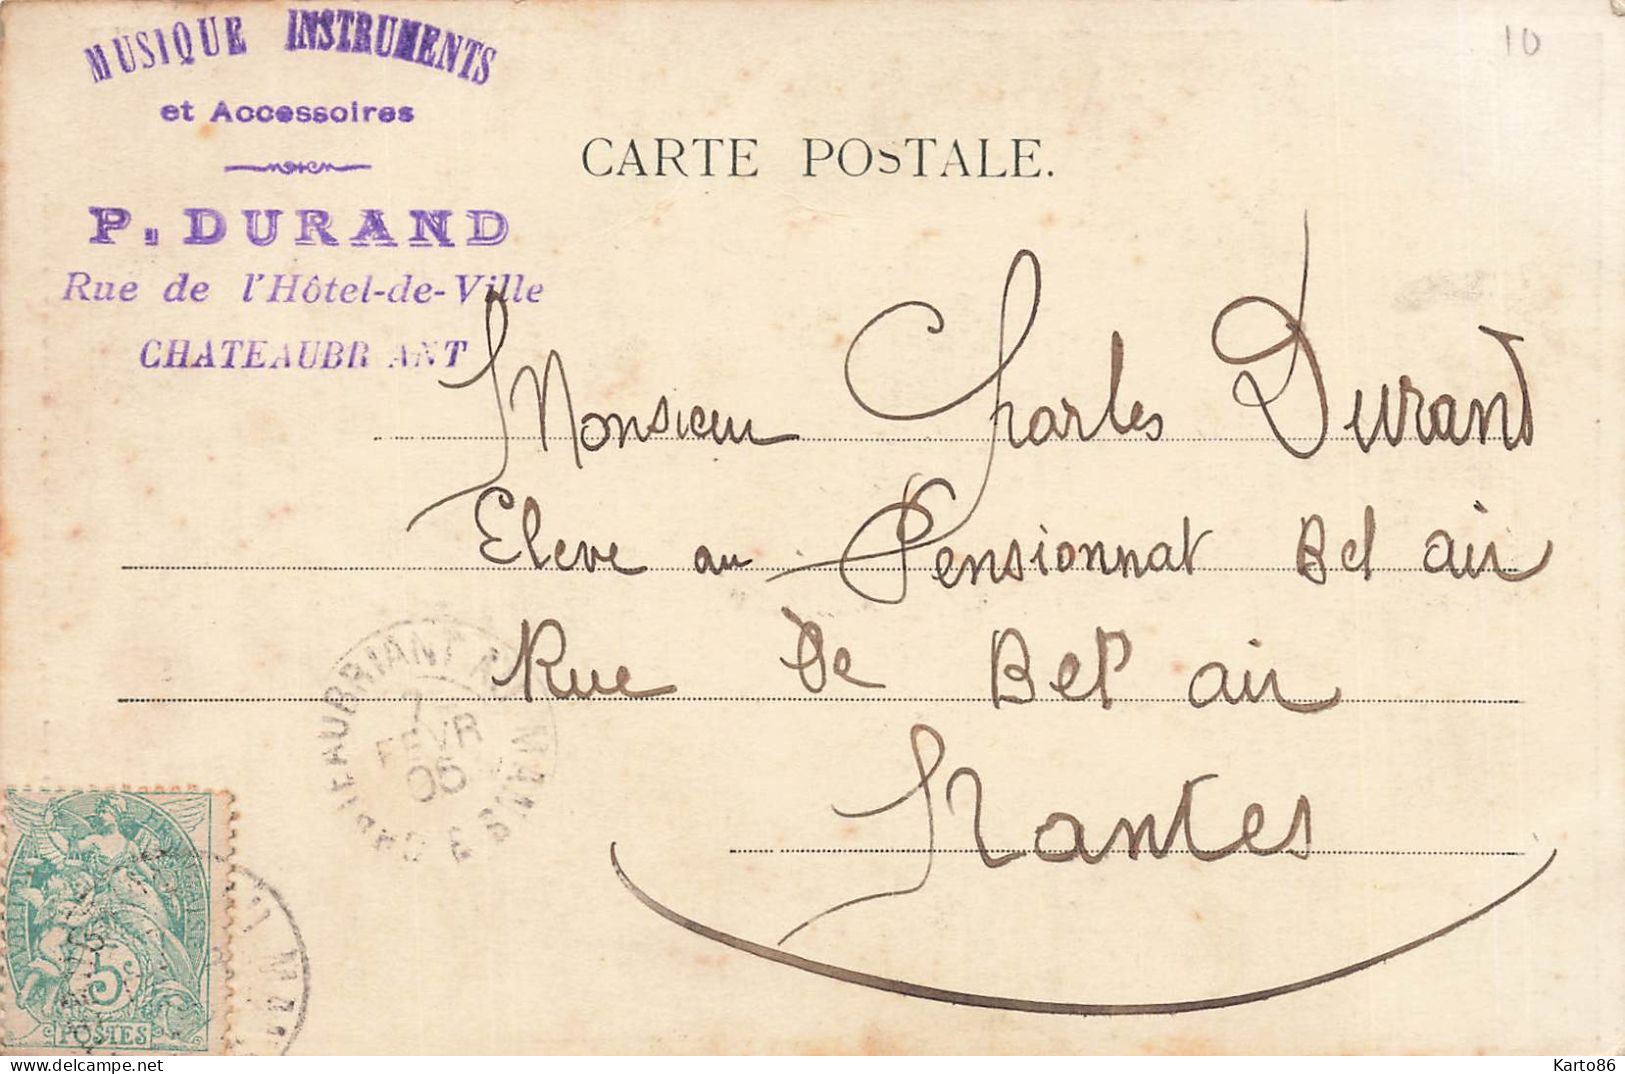 MUSIQUE INSTRUMENTS
et Accessoires
P. DURAND
Rue de l'Hôtel-de-Ville
CHATEAUBR ANT
10
CARTE POSTALE.
Monsieur Charles Durand
Eleve au Pensionnat Bel air
Rue de Bel air
Nantes
7
FEVR
05
5c
POSTES
Karto86